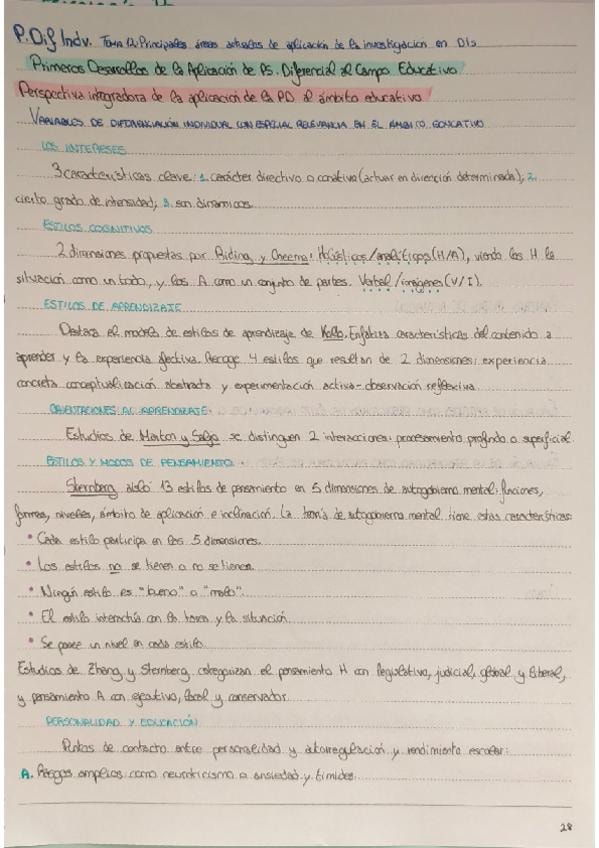 P. Dif Indv. Tema 12: Principales áreas actuales de aplicación de la investigación en DIs
Primeros Desarrollos de la Aplicación de Ps. Diferencial al Campo Educativo
Perspectiva integradora de la aplicación de la PD al ámbito educativo
VARIABLES DE DIFERENCIACIÓN INDIVIDUAL CON ESPECIAL RELEVANCIA EN EL ÁMBITO EDUCATIVO
LOS INTERESES
3 características clave: 1. carácter directivo o conativo (actuar en dirección determinada), 2.
cierto grado de intensidad, 3. son dinámicos.
ESTILOS COGNITIVOS
2 dimensiones propuestas por Riding y Cheema: Holísticos/analíticos (H/A), viendo los H la
situación como un todo, y los A como un conjunto de partes. Verbal/imágenes (V/I).
ESTILOS DE APRENDIZAJE
Destaca el modelo de estilos de aprendizaje de Kolb. Enfatiza características del contenido a
aprender y la experiencia afectiva. Recoge 4 estilos que resultan de 2 dimensiones: experiencia
concreta conceptualización abstracta y experimentación activa-observación reflexiva.
ORIENTACIONES AL APRENDIZAJE
Estudios de Marton y Saljo se distinguen 2 interacciones: procesamiento profundo o superficial.
ESTILOS Y MODOS DE PENSAMIENTO
Sternberg aisló 13 estilos de pensamiento en 5 dimensiones de autogobierno mental: funciones,
formas, niveles, ámbito de aplicación e inclinación. La teoría de autogobierno mental tiene estas características:
• Cada estilo participa en las 5 dimensiones.
• Los estilos no se tienen o no se tienen.
• Ningún estilo es "bueno" o "malo".
• El estilo interactúa con la tarea y la situación.
• Se posee un nivel en cada estilo.
Estudios de Zhang y Sternberg categorizan el pensamiento H con legislativo, judicial, global y liberal,
y pensamiento A con ejecutivo, local y conservador.
PERSONALIDAD Y EDUCACIÓN
Puntos de contacto entre personalidad y autorregulación y rendimiento escolar:
A. Rasgos amplios como neuroticismo o ansiedad y timidez.
28